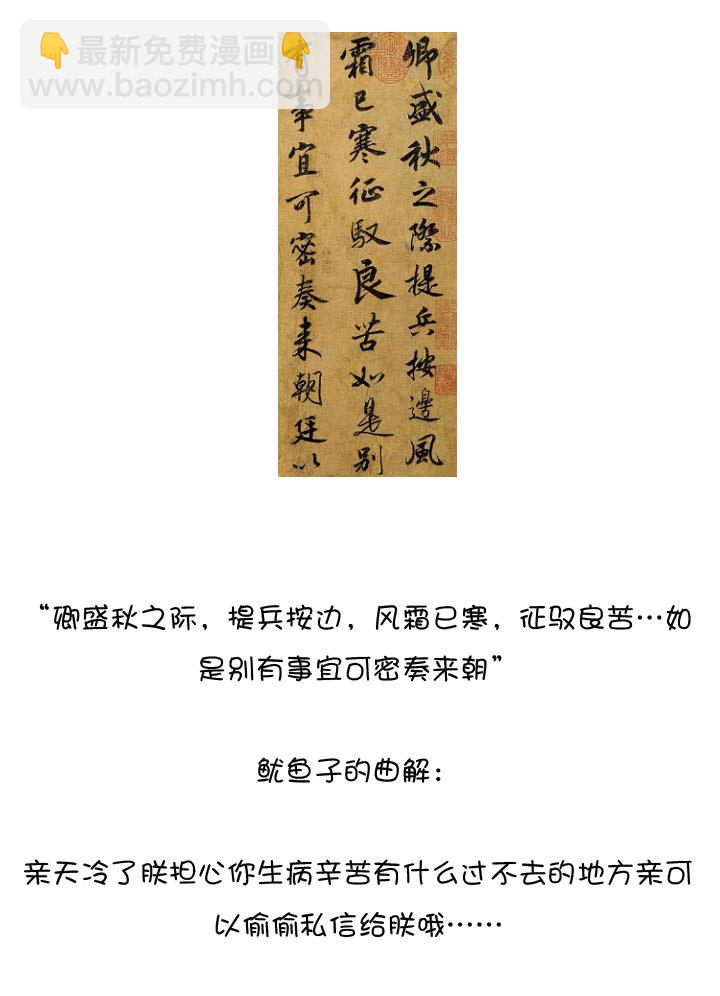 👇最新免费漫画👇
www.baozimh.com
卿盛秋之際提兵按邊風
霜已寒征馭良苦如是别
事宜可密奏来朝廷以
“卿盛秋之际，提兵按边，风霜已寒，征驭良苦…如
是别有事宜可密奏来朝”
鱿鱼子的曲解：
亲天冷了朕担心你生病辛苦有什么过不去的地方亲可
以偷偷私信给朕哦……